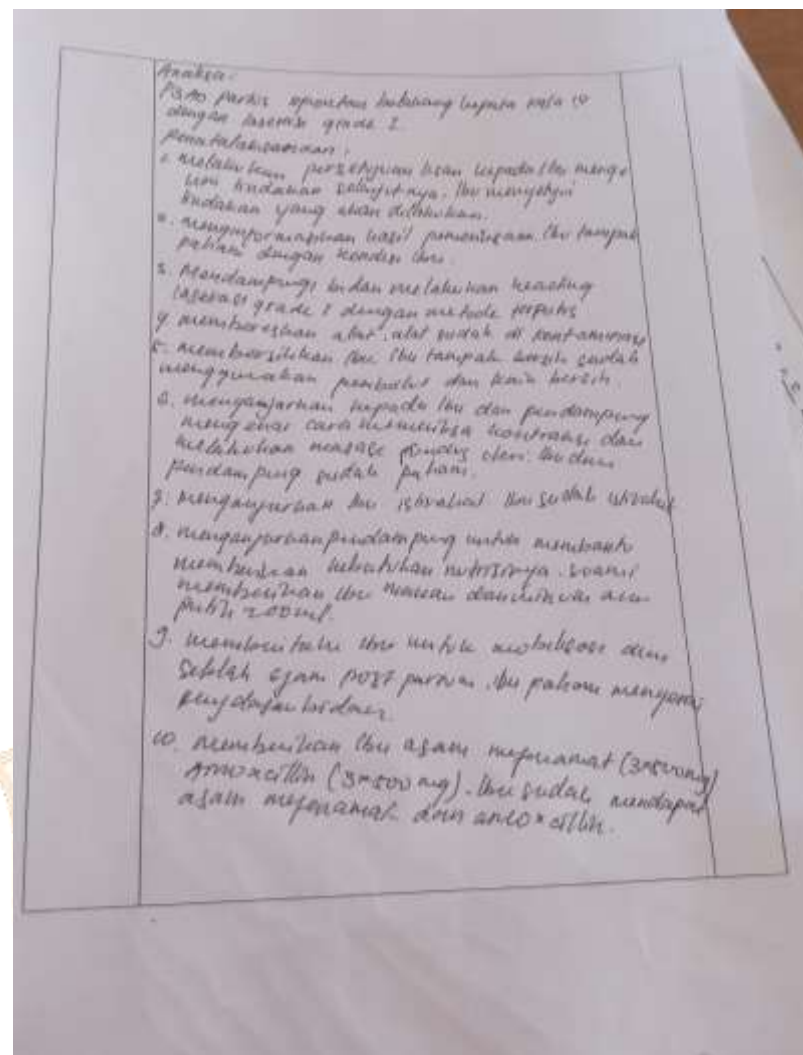 Analisa:
P3A0 partus spontan belakang kepala kala IV
dengan laserasi grade 2
penatalaksanaan:
1. melakukan persetujuan lisan kepada ibu menge
nai tindakan selanjutnya. Ibu menyetujui
tindakan yang akan dilakukan.
2. menginformasikan hasil pemeriksaan. Ibu tampak
paham dengan kondisi ibu.
3. Mendampingi bidan melakukan heacting
laserasi grade 2 dengan metode terputus
4. membereskan alat, alat sudah di kontaminasi
5. membersihkan ibu. Ibu tampak bersih sudah
menggunakan pembalut dan kain bersih.
6. menganjurkan kepada Ibu dan pendamping
mengenai cara memeriksa kontraksi dan
melakukan masase fundus uteri. Ibu dan
pendamping sudah paham.
7. menganjurkan ibu istirahat. Ibu sudah istirahat
8. menganjurkan pendamping untuk membantu
memberikan kebutuhan nutrisinya. Suami
memberikan ibu makan dan minum air
putih 200ml.
9. memberitahu ibu untuk mobilisasi dini
setelah 2jam post partum. ibu paham mengenai
penjelasan bidan.
10. memberikan Ibu asam mefenamat (3x500mg)
Amoxcillin (3x500 mg). Ibu sudah mendapat
asam mefenamat dan amoxcillin.